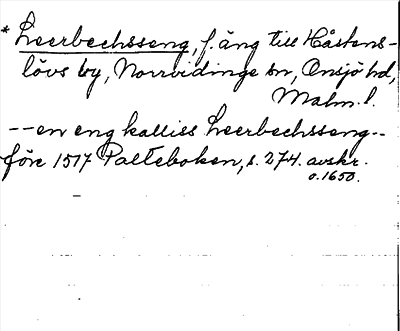 * Leerbechsseng, f. äng till Håstens-
lövs by, Norrvidinge sn, Onsjö hd,
Malm. l.
-- en eng kalliss Leerbechsseng --
före 1517 Palteboken, s. 274. avskr.
o. 1650.